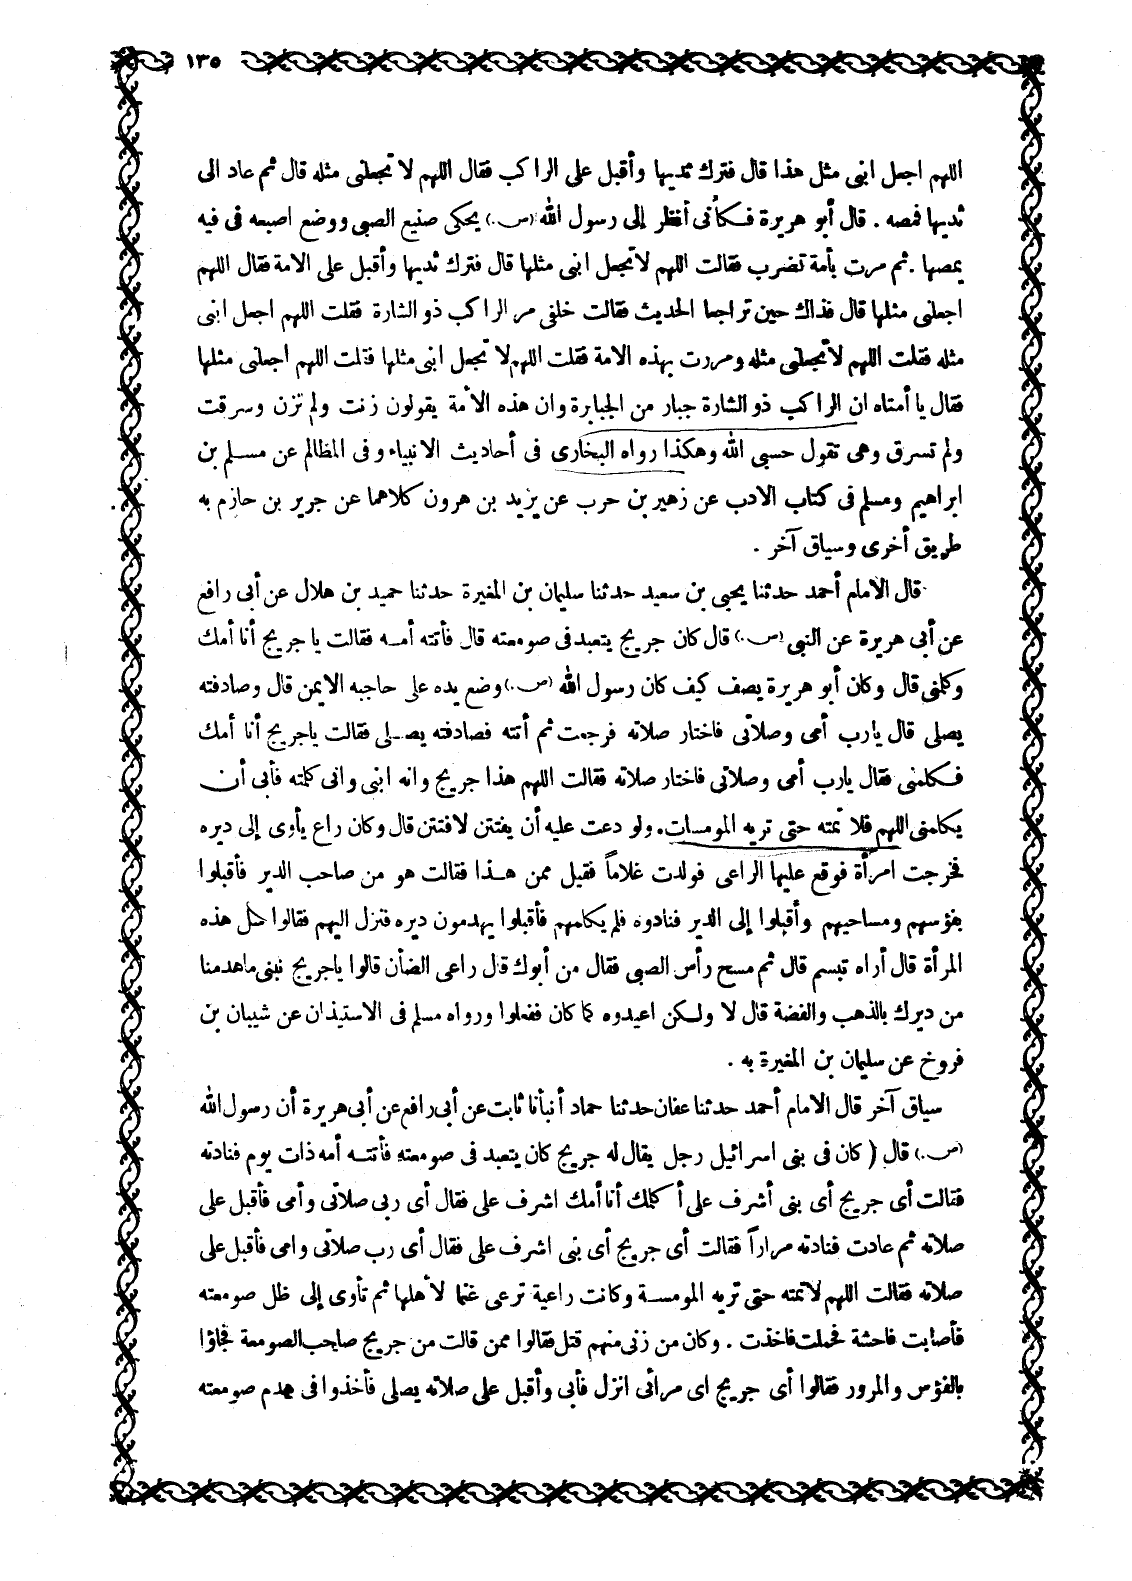 ١٣٥
اللهم اجعل ابنى مثل هذا قال فترك ثديها وأقبل على الراكب فقال اللهم لا تجعلنى مثله قال ثم عاد الى
ثديها فمصه . قال أبو هريرة فكأنى أنظر إلى رسول الله (ص.) يحكى صنيع الصبى ووضع اصبعه فى فيه
يمصها . ثم مرت بأمة تضرب فقالت اللهم لا تجعل ابنى مثلها قال فترك ثديها وأقبل على الامة فقال اللهم
اجعلنى مثلها قال فذاك حين تراجعا الحديث فقالت خلفى مر الراكب ذو الشارة فقلت اللهم اجعل ابنى
مثله فقلت اللهم لا تجعلنى مثله ومررت بهذه الامة فقلت اللهم لا تجعل ابنى مثلها فقلت اللهم اجعلنى مثلها
فقال يا أمتاه ان الراكب ذو الشارة جبار من الجبابرة وان هذه الأمة يقولون زنت ولم تزن وسرقت
ولم تسرق وهى تقول حسبى الله وهكذا رواه البخارى فى أحاديث الانبياء وفى المظالم عن مسلم بن
ابراهيم ومسلم فى كتاب الادب عن زهير بن حرب عن يزيد بن هرون كلاهما عن جرير بن حازم به
طريق أخرى وسياق آخر .
قال الامام أحمد حدثنا يحيى بن سعيد حدثنا سليمان بن المغيرة حدثنا حميد بن هلال عن أبى رافع
عن أبى هريرة عن النبى (ص.) قال كان جريج يتعبد فى صومعته قال فأتته أمه فقالت يا جريج أنا أمك
وكلمنى قال وكان أبو هريرة يصف كيف كان رسول الله (ص.) وضع يده على حاجبه الايمن قال وصادفته
يصلى قال يارب أمى وصلاتى فاختار صلاته فرجعت ثم أتته فصادفته يصلى فقالت ياجريج أنا أمك
فكلمنى فقال يارب أمى وصلاتى فاختار صلاته فقالت اللهم هذا جريج وانه ابنى وانى كلمته فأبى أن
يكلمنى اللهم فلا تمته حتى تريه المومسات . ولو دعت عليه أن يفتتن لافتتن قال وكان راع يأوى إلى ديره
فخرجت امرأة فوقع عليها الراعى فولدت غلاماً فقيل ممن هذا فقالت هو من صاحب الدير فأقبلوا
بفؤسهم ومساحيهم وأقبلوا إلى الدير فنادوه فلم يكلمهم فأقبلوا يهدمون ديره فنزل اليهم فقالوا سل هذه
المرأة قال أراه تبسم قال ثم مسح رأس الصبى فقال من أبوك قال راعى الضأن قالوا ياجريج نبنى ماهدمنا
من ديرك بالذهب والفضة قال لا ولكن اعيدوه كما كان ففعلوا ورواه مسلم فى الاستيذان عن شيبان بن
فروخ عن سليمان بن المغيرة به .
سياق آخر قال الامام أحمد حدثنا عفان حدثنا حماد أنبأنا ثابت عن أبى رافع عن أبى هريرة أن رسول الله
(ص.) قال ( كان فى بنى اسرائيل رجل يقال له جريج كان يتعبد فى صومعته فأتته أمه ذات يوم فنادته
فقالت أى جريج أى بنى أشرف على أكلمك أنا أمك اشرف على فقال أى ربى صلاتى وأمى فأقبل على
صلاته ثم عادت فنادته مراراً فقالت أى جريج أى بنى اشرف على فقال أى رب صلاتى وامى فأقبل على
صلاته فقالت اللهم لا تمته حتى تريه المومسة وكانت راعية ترعى غنما لأهلها ثم تأوى إلى ظل صومعته
فأصابت فاحشة فحملت فاخذت . وكان من زنى منهم قتل فقالوا ممن قالت من جريج صاحب الصومعة فجاؤا
بالفؤس والمرور فقالوا أى جريج اى مرائى انزل فأبى وأقبل على صلاته يصلى فأخذوا فى هدم صومعته